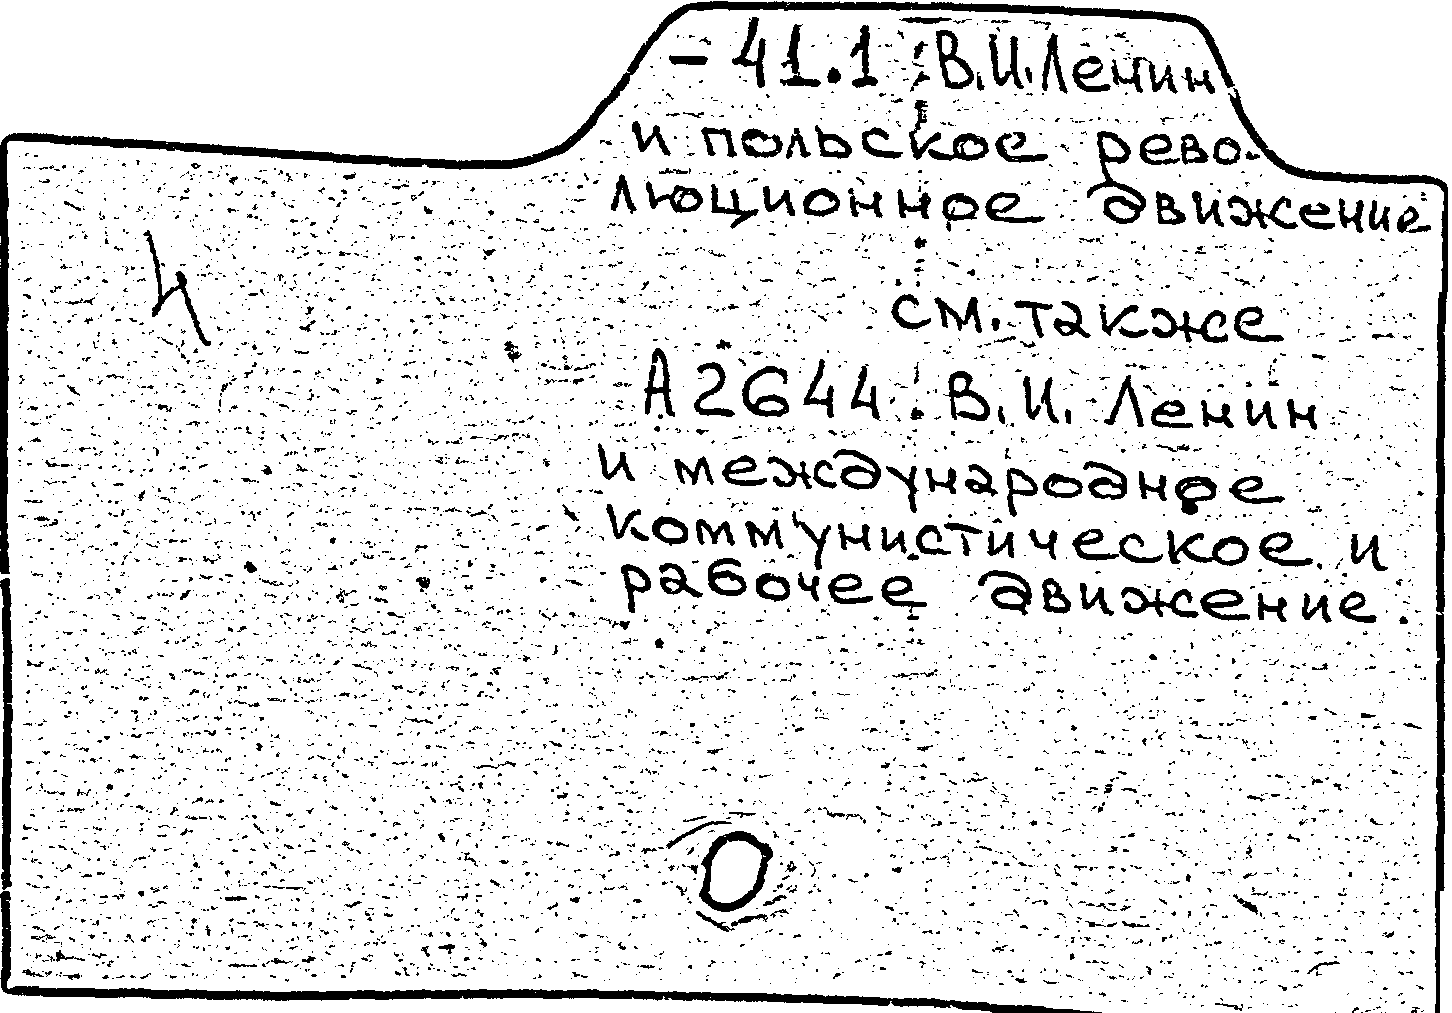 – 41.1 В.И.Ленин
и польское рево-
люционное движение
см. также
А2644. В.И. Ленин
и международное
коммунистическое и
рабочее движение.